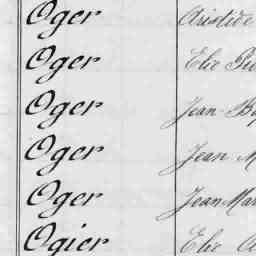 Oger Aristide
Oger Elie
Oger Jean-
Oger Jean M
Oger Jean Mar
Ogier Elie